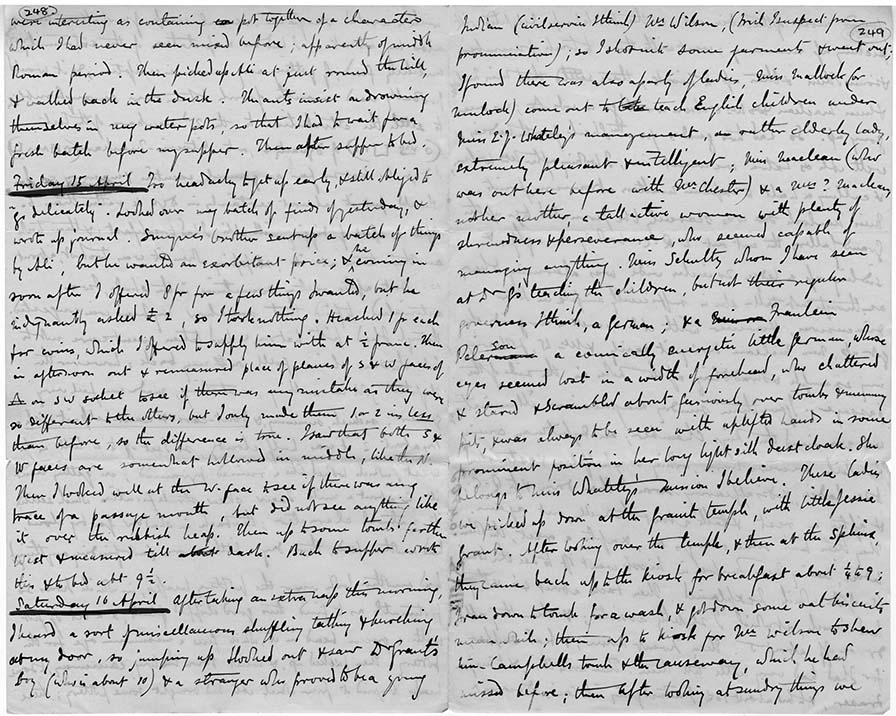 248
were interesting as containing pot together of a character
which I had never seen mixed before; apparently of middle
Roman period. Then picked up Ali at just round the hill,
& walked back in the dusk. The ants insist on drowning
themselves in my water pots, so that I had to wait for a
fresh batch before my supper. Then after supper to bed.
Friday 15 April Too headachy to get up early, & still obliged to
"go delicately". Looked over my batch of finds of yesterday, &
wrote up journal. brother sent up a batch of things
by Ali, but he wanted an exorbitant price; & he coming in
soon after I offered 8 fr for a few things I wanted, but he
indignantly asked £2, so I took nothing. He asked 1 fr each
for coins, which I offered to supply him with at ½ franc. Then
in afternoon out & remeasured place of planes of S & W faces of
△ on SW socket to see if there was any mistake as they were
so different to the others, but I only made them 1 or 2 ins less
than before, so the difference is true. I saw that both S &
W faces are somewhat hollowed in middle, like the N.
Then I looked well at the W. face to see if there was any
trace of a passage mouth, but did not see anything like
it over the rubbish heap. Then up to some tombs farther
West & measured till dark. Back to supper wrote
this & to bed abt 9½.
Saturday 16 April After taking an extra nap this morning,
I heard a sort of miscellaneous shuffling talking & knocking
at my door, so jumping up I looked out & saw Dr Grant's
boy (who is about 10) & a stranger who proved to be a young
249
Indian (civil servin I think) Mr Wilson, (Irish I suspect from
pronunciation); so I slipt into some garments & went out;
I found there was also a party of ladies, Miss Mallock (or
Munlock) come out to teach English children under
Miss Whately's management, an rather elderly lady,
extremely pleasant & intelligent; Miss Maclean (who
was out here before with Mrs Chester) & a Mrs? Maclean
mother, a tall active woman with plenty of
shrewdness & perseverance, who seemed capable of
managing anything. Miss Schultz whom I have seen
at Dr G's teaching the children, but not their regular
governess I think, a German; & a Fraulein
Peterson a comically energetic little German, whose
eyes seemed lost in a width of forehead, who chattered
& stared & scrambled about furiously over tombs & mummy
pits, & was always to be seen with uplifted hands in some
prominent position in her long light silk dust cloak. She
belongs to Miss Whately's mission I believe. These ladies
we picked up down at the granite temple, with little Jessie
Grant. After looking over the temple, & then at the Sphinx,
they came back up to the Kiosk for breakfast about ¼ to 9;
I ran down to tomb for a wash, & got down some oat biscuits
meanwhile; then up to kiosk for Mr Wilson to shew
him Campbells tomb & the causeway, which he had
missed before; then after looking at sundry things we